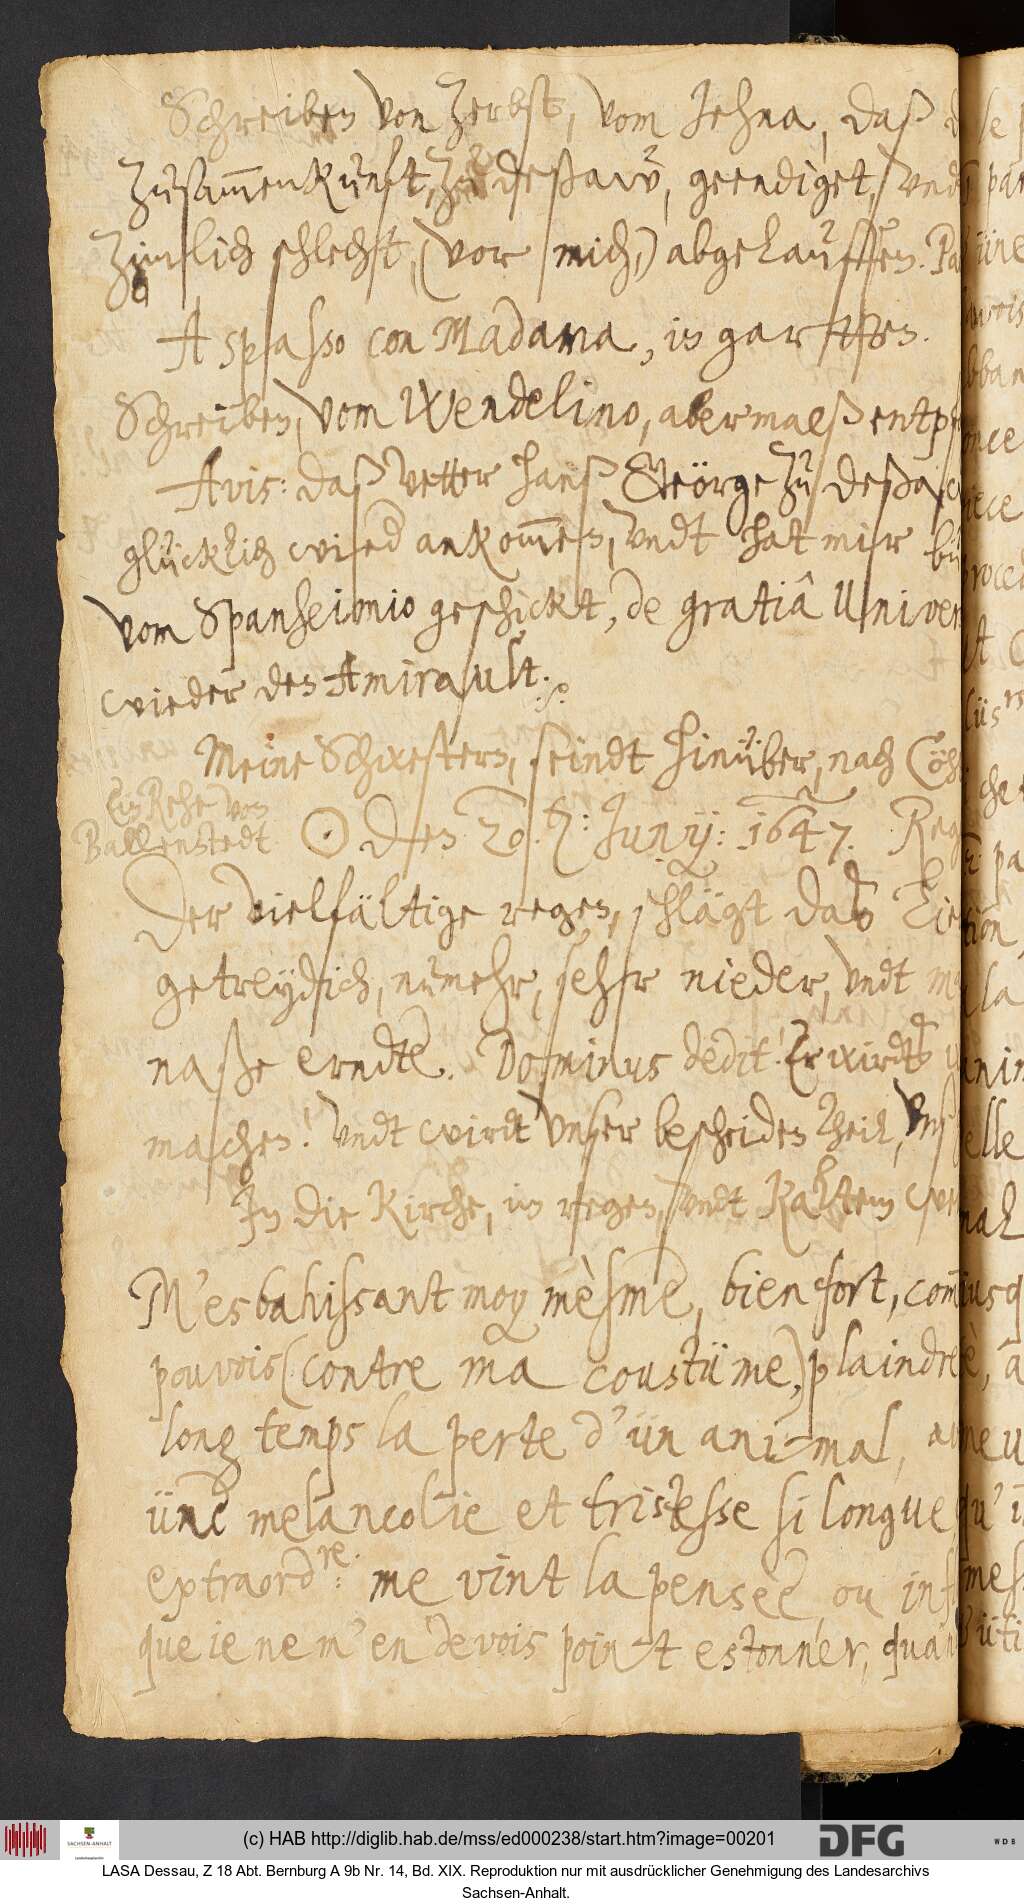 Schreiben von Zerbst, vom Jehna, daß d
Zusammenkunft, zu Deßaw, geendiget, vnd
Zimlich schlecht, (vor mich,) abgelauffen.
A spasso con Madama, in gartten.
Schreiben, vom Wendelino, abermalß entpf
Avis: daß Vetter Hanß George zu Deßa
glücklich wied ankommen, vndt hat mir bü
vom Spanheimio geschickt, de gratiâ Univer
wieder den Amirault. ./.
Meine Schwestern, seindt hinüber, nach Cöht
Ein Rehe von
Ballenstedt
☉ den 20. Junij: 1647. Reg
Der vielfältige regen, schlägt das lie
getreydich, numehr, sehr nieder, vndt m
naße erndte. Dominus dedit! Er wirdts
machen! vndt wirdt vnser bescheiden theil, vns
In die Kirche, in regen, vndt kaltem we
M'esbahissant moy mèsme, bien fort, com
pouvois (contre ma coustüme,) plaindre
long temps la perte d'ün ani-mal, av
üne melancolie et tristesse si longue,
extraordre: me vint la pensèe, ou insp
que ie ne m'en devois point estonner, quan
(c) HAB http://diglib.hab.de/mss/ed000238/start.htm?image=00201
DFG
WDB
SACHSEN-ANHALT
LASA Dessau, Z 18 Abt. Bernburg A 9b Nr. 14, Bd. XIX. Reproduktion nur mit ausdrücklicher Genehmigung des Landesarchivs
Sachsen-Anhalt.